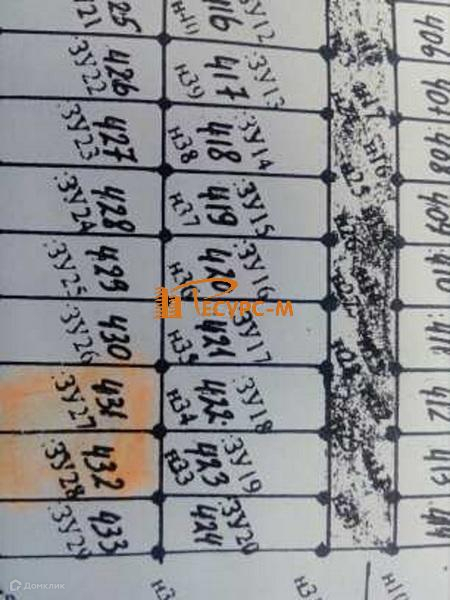 25
:ЗУ21
416
н41
:ЗУ12
406
426
:ЗУ22
417
н39
:ЗУ13
407
427
:ЗУ23
418
н38
:ЗУ14
408
428
:ЗУ24
419
н37
:ЗУ15
409
429
:ЗУ25
420
н36
:ЗУ16
410
РЕСУРС-М
430
:ЗУ26
421
н35
:ЗУ17
411
431
:ЗУ27
422
н34
:ЗУ18
412
432
:ЗУ28
423
н33
:ЗУ19
413
433
:ЗУ29
424
:ЗУ20
414
н3
н3
н10
Домклик